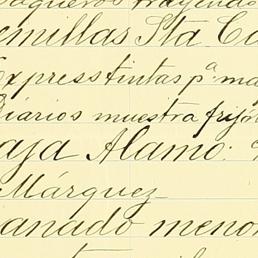 aqueros trayendo
emillas Sta Ca
Express tintas pª ma
Diarios muestra frijo
aja Alamo.
Márquez
anado menor